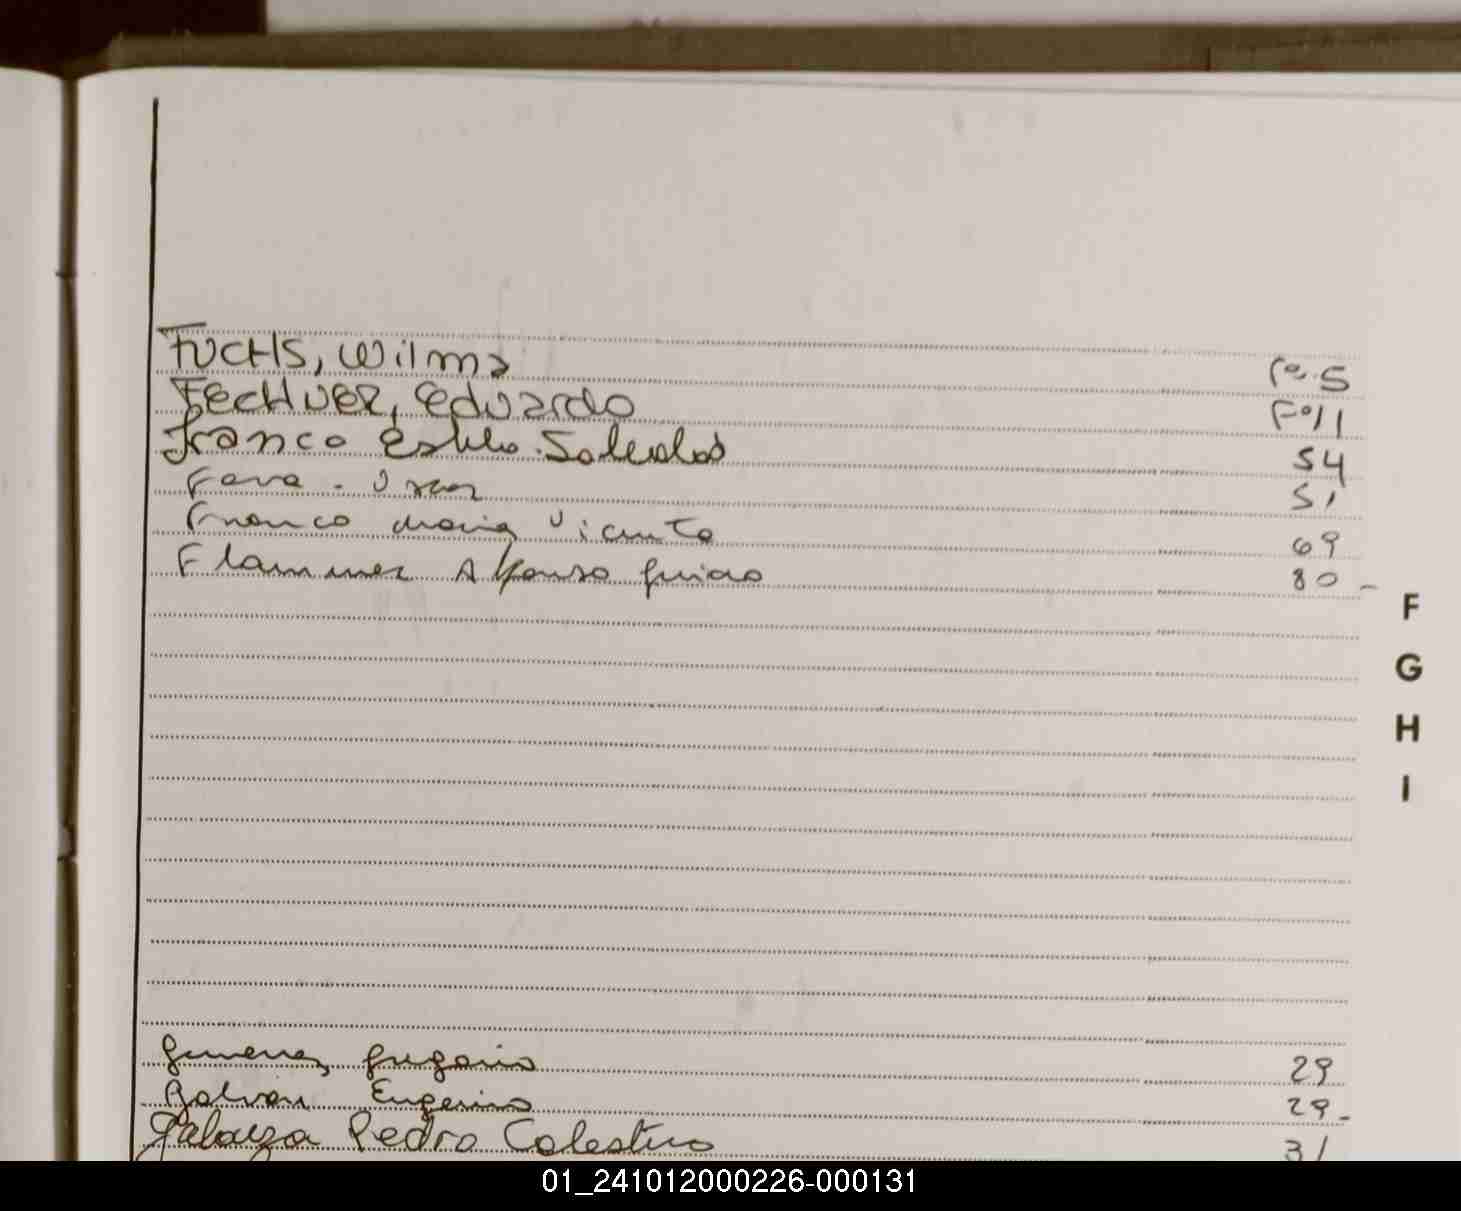 FUCHS, Wilma Fº.5
FECHNER, Eduardo Fº11
Franco Soledad 54
Fava - Oscar 51
Franco Maria Vicenta 69
Alfonso Guido 80 -
F
G
H
I
Gimenez Gregorio 29
Galvan Eugenio 29 -
Pedro Celestino 31
01_241012000226-000131